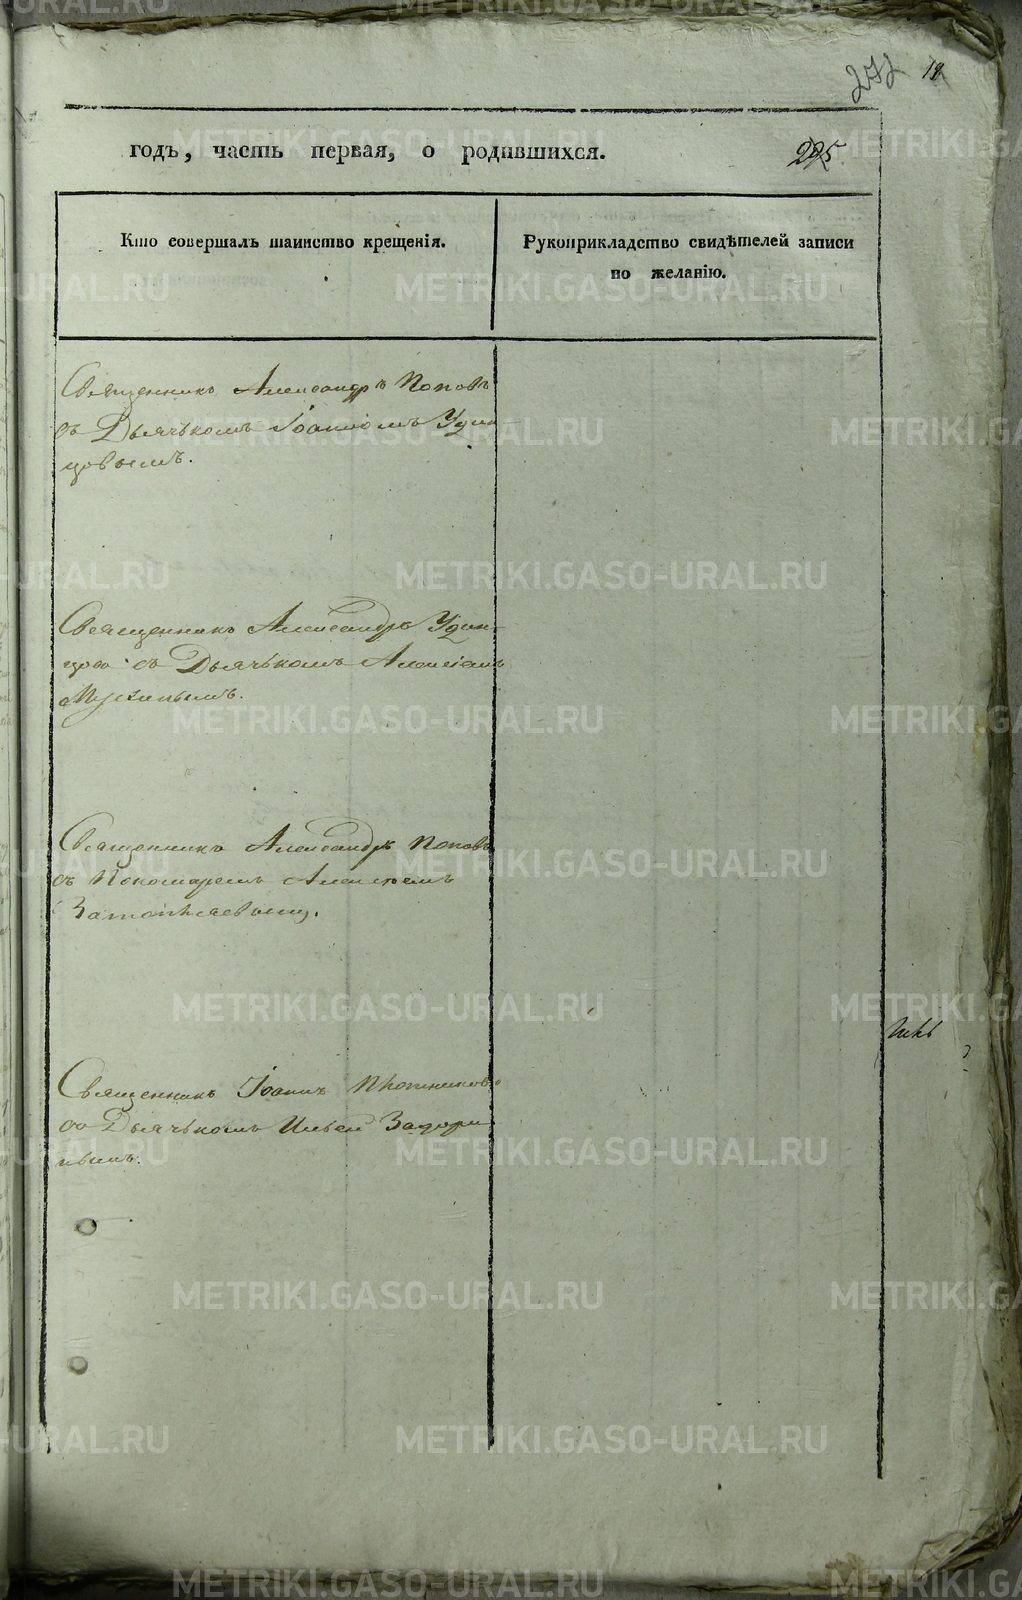 272 19
годъ, часть первая, о родившихся. 225
Кто совершалъ таинство крещенія.
Рукоприкладство свидѣтелей записи
по желанію.
Священникъ Александръ Поповъ
съ Дьячькомъ Іоанномъ Удин-
цовымъ.
Священникъ Александръ Удин-
цовъ съ Дьячькомъ Алексіемъ
Мускинымъ.
Священникъ Александръ Поповъ
съ Пономаремъ Алексѣемъ
Священникъ Іоаннъ Плотниковъ
съ Дьячькомъ Ильей Задори
нымъ.
METRIKI.GASO-URAL.RU